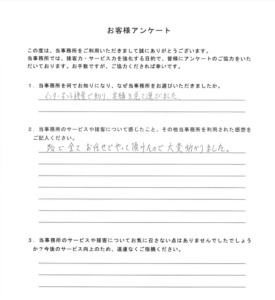 お客様アンケート
この度は、当事務所をご利用いただきまして誠にありがとうございます。
当事務所では、接客力・サービス力を強化する目的で、皆様にアンケートのご協力をいた
だいております。お手数ですが、ご協力くだされば幸いです。
1．当事務所を何でお知りになり、なぜ当事務所をお選びいただきましたか。
インターネット検索で知り、実績を見て選びました
2．当事務所のサービスや接客について感じたこと、その他当事務所を利用された感想を
ご記入ください。
全てお任せでやって頂けたので大変助かりました。
3．当事務所のサービスや接客についてお気に召さない点はありませんでしたでしょう
か？今後のサービス向上のため、遠慮なくご指摘ください。